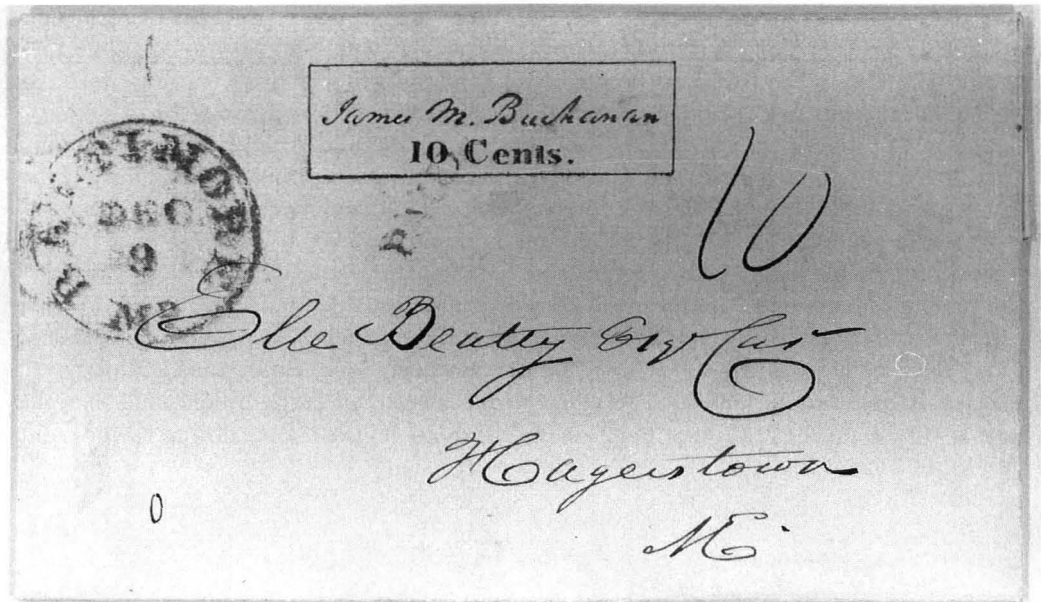 James M. Buchanan
10 Cents.
BALTIMORE
DEC
9
Md
10
Elie Beatty Esqr Cas
Hagerstown
Md